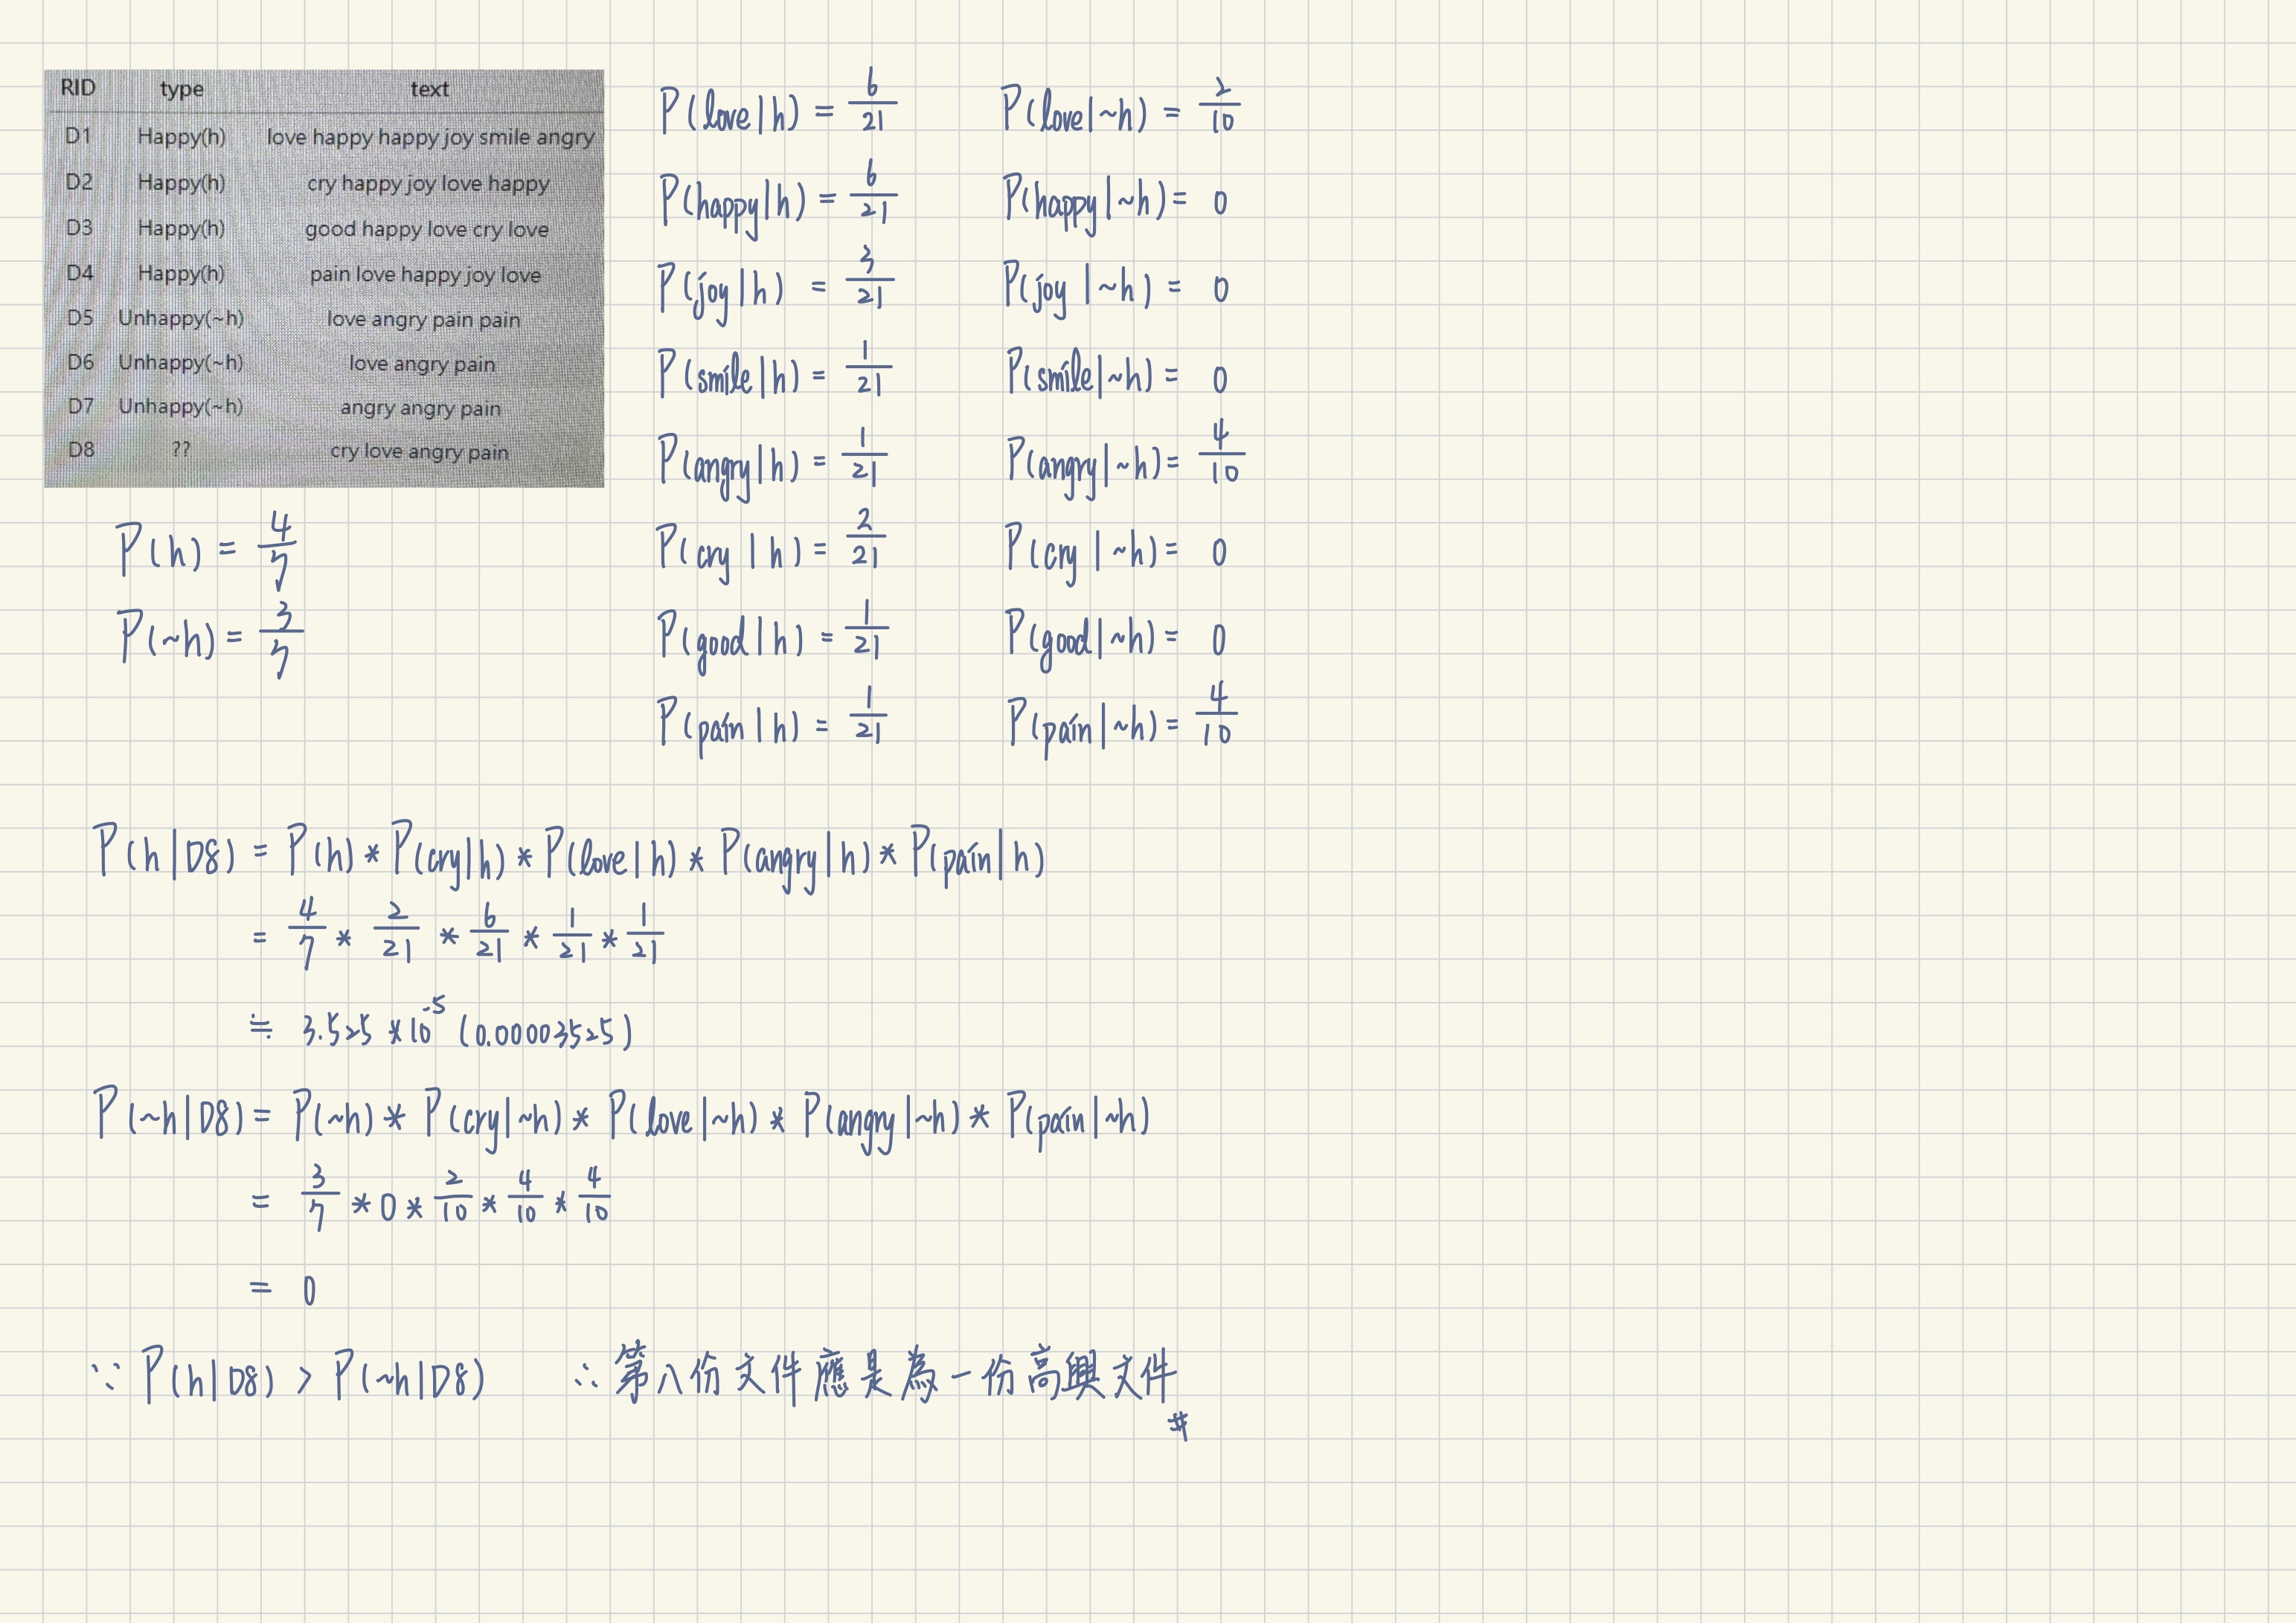 RID type text
D1 Happy(h) love happy happy joy smile angry
D2 Happy(h) cry happy joy love happy
D3 Happy(h) good happy love cry love
D4 Happy(h) pain love happy joy love
D5 Unhappy(~h) love angry pain pain
D6 Unhappy(~h) love angry pain
D7 Unhappy(~h) angry angry pain
D8 ?? cry love angry pain
P(h) = 4/7
P(~h) = 3/7
P(love|h) = 6/21 P(love|~h) = 2/10
P(happy|h) = 6/21 P(happy|~h) = 0
P(joy|h) = 3/21 P(joy|~h) = 0
P(smile|h) = 1/21 P(smile|~h) = 0
P(angry|h) = 1/21 P(angry|~h) = 4/10
P(cry|h) = 2/21 P(cry|~h) = 0
P(good|h) = 1/21 P(good|~h) = 0
P(pain|h) = 1/21 P(pain|~h) = 4/10
P(h|D8) = P(h) * P(cry|h) * P(love|h) * P(angry|h) * P(pain|h)
= 4/7 * 2/21 * 6/21 * 1/21 * 1/21
≒ 3.525 * 10^-5 (0.00003525)
P(~h|D8) = P(~h) * P(cry|~h) * P(love|~h) * P(angry|~h) * P(pain|~h)
= 3/7 * 0 * 2/10 * 4/10 * 4/10
= 0
∵ P(h|D8) > P(~h|D8) ∴ 第八份文件應是為一份高興文件 #